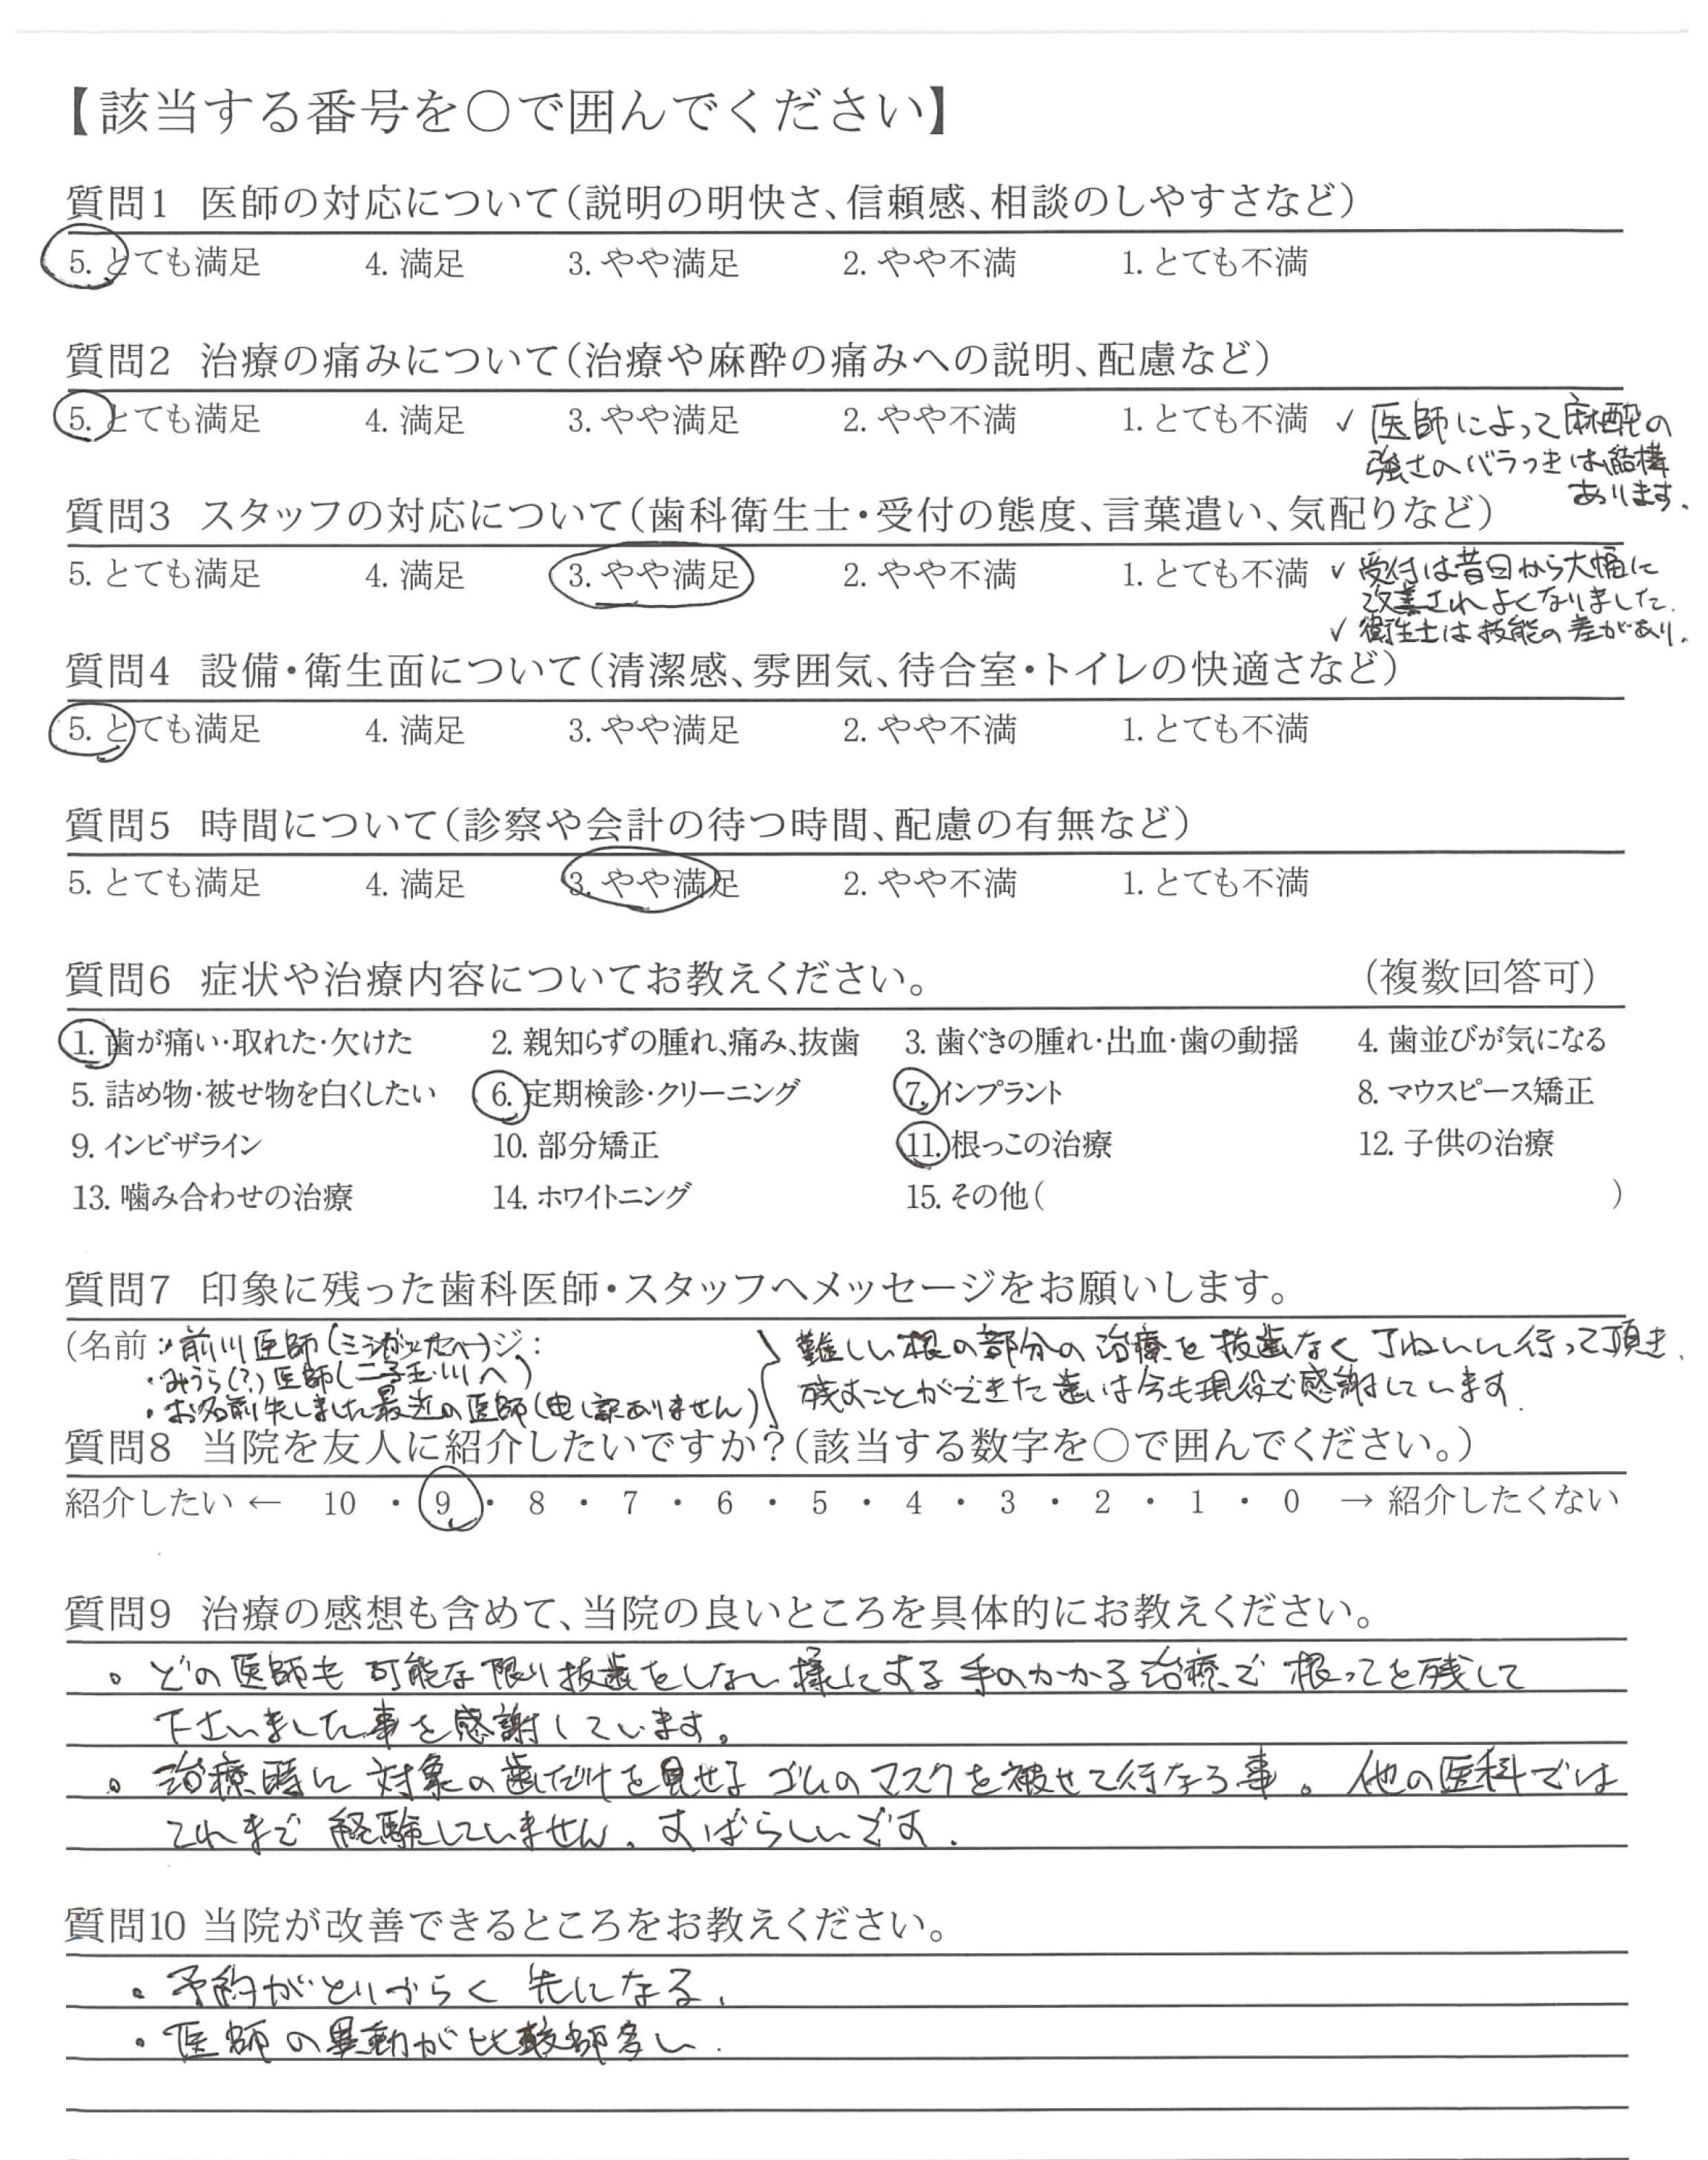 【該当する番号を○で囲んでください】
質問1 医師の対応について（説明の明快さ、信頼感、相談のしやすさなど）
5. とても満足 4. 満足 3. やや満足 2. やや不満 1. とても不満
質問2 治療の痛みについて（治療や麻酔の痛みへの説明、配慮など）
5. とても満足 4. 満足 3. やや満足 2. やや不満 1. とても不満 ✓ 医師によって麻酔の
強さのバラつきは結構
あります.
質問3 スタッフの対応について（歯科衛生士・受付の態度、言葉遣い、気配りなど）
5. とても満足 4. 満足 3. やや満足 2. やや不満 1. とても不満 ✓ 受付は昔日から大幅に
改善されよくなりました.
✓ 衛生士は技能の差があり.
質問4 設備・衛生面について（清潔感、雰囲気、待合室・トイレの快適さなど）
5. とても満足 4. 満足 3. やや満足 2. やや不満 1. とても不満
質問5 時間について（診察や会計の待つ時間、配慮の有無など）
5. とても満足 4. 満足 3. やや満足 2. やや不満 1. とても不満
質問6 症状や治療内容についてお教えください。 （複数回答可）
1. 歯が痛い・取れた・欠けた 2. 親知らずの腫れ、痛み、抜歯 3. 歯ぐきの腫れ・出血・歯の動揺 4. 歯並びが気になる
5. 詰め物・被せ物を白くしたい 6. 定期検診・クリーニング 7. インプラント 8. マウスピース矯正
9. インビザライン 10. 部分矯正 11. 根っこの治療 12. 子供の治療
13. 噛み合わせの治療 14. ホワイトニング 15. その他（ ）
質問7 印象に残った歯科医師・スタッフへメッセージをお願いします。
（名前：・前川医師 ジ： 難しい根の部分の治療を抜歯なく丁ねいに行って頂き.
・みうら(?)医師(二子玉川へ) 残すことができた歯は今も現役で感謝しています.
・お名前失しました最近の医師(申し訳ありません)
質問8 当院を友人に紹介したいですか？（該当する数字を○で囲んでください。）
紹介したい ← 10 ・ 9 ・ 8 ・ 7 ・ 6 ・ 5 ・ 4 ・ 3 ・ 2 ・ 1 ・ 0 → 紹介したくない
質問9 治療の感想も含めて、当院の良いところを具体的にお教えください。
。どの医師も可能な限り抜歯をしない様にする手のかかる治療で根っこを残して
下さいました事を感謝しています。
。治療時に対象の歯だけを見せるゴムのマスクを被せて行なう事。他の医科では
これまで経験していません。すばらしいです.
質問10 当院が改善できるところをお教えください。
・予約がとりづらく先になる.
・医師の異動が比較的多い.